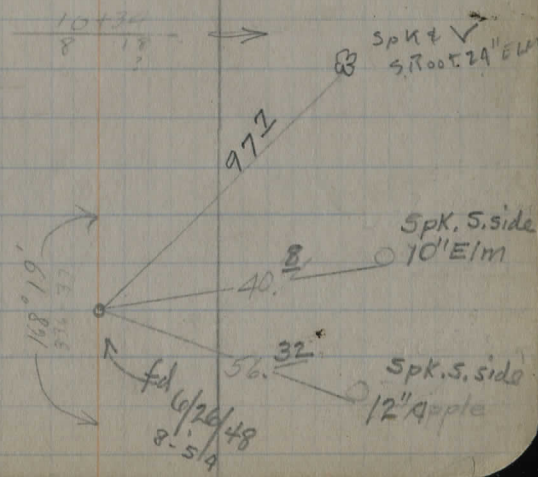 10+34
8 18
?
Spk & ✓
S. Root 24" Elm
97 7
Spk. S. side
10" Elm
40. 8
168° 19'
56. 32
Spk. S. side
12" Apple
fd
6/26/48
8-5-4